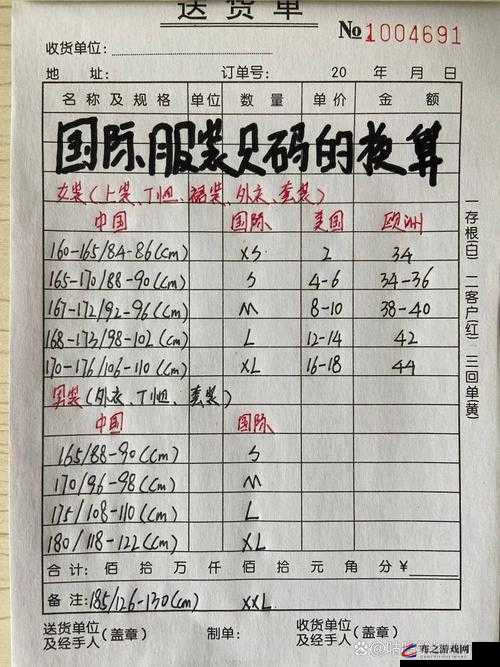 送货单
№1004691
收货单位：
地 址： 订单号： 20 年 月 日
名称及规格 单位 数量 单价 金额
国际服装尺码的换算
女装（上装、T恤、裙装、外衣、套装）
中国 国际 美国 欧洲
160-165/84-86(cm) XS 2 34
165-170/88-90(cm) S 4-6 34-36
167-172/92-96(cm) M 8-10 38-40
168-173/98-102(cm) L 12-14 42
170-176/106-110(cm) XL 16-18 44
男装（外衣、T恤、套装）
中国 国际
165/88-90(cm) S
170/96-98(cm) M
175/108-110(cm) L
180/118-122(cm) XL
合计： 佰 拾 万 仟 佰 拾 元 角 分 ¥
备注：185/126-130(cm) XXL
送货单位及经手人（盖章） 制单： 收货单位及经手人（盖章）
一存根(白) 二客户(红) 三回单(黄)